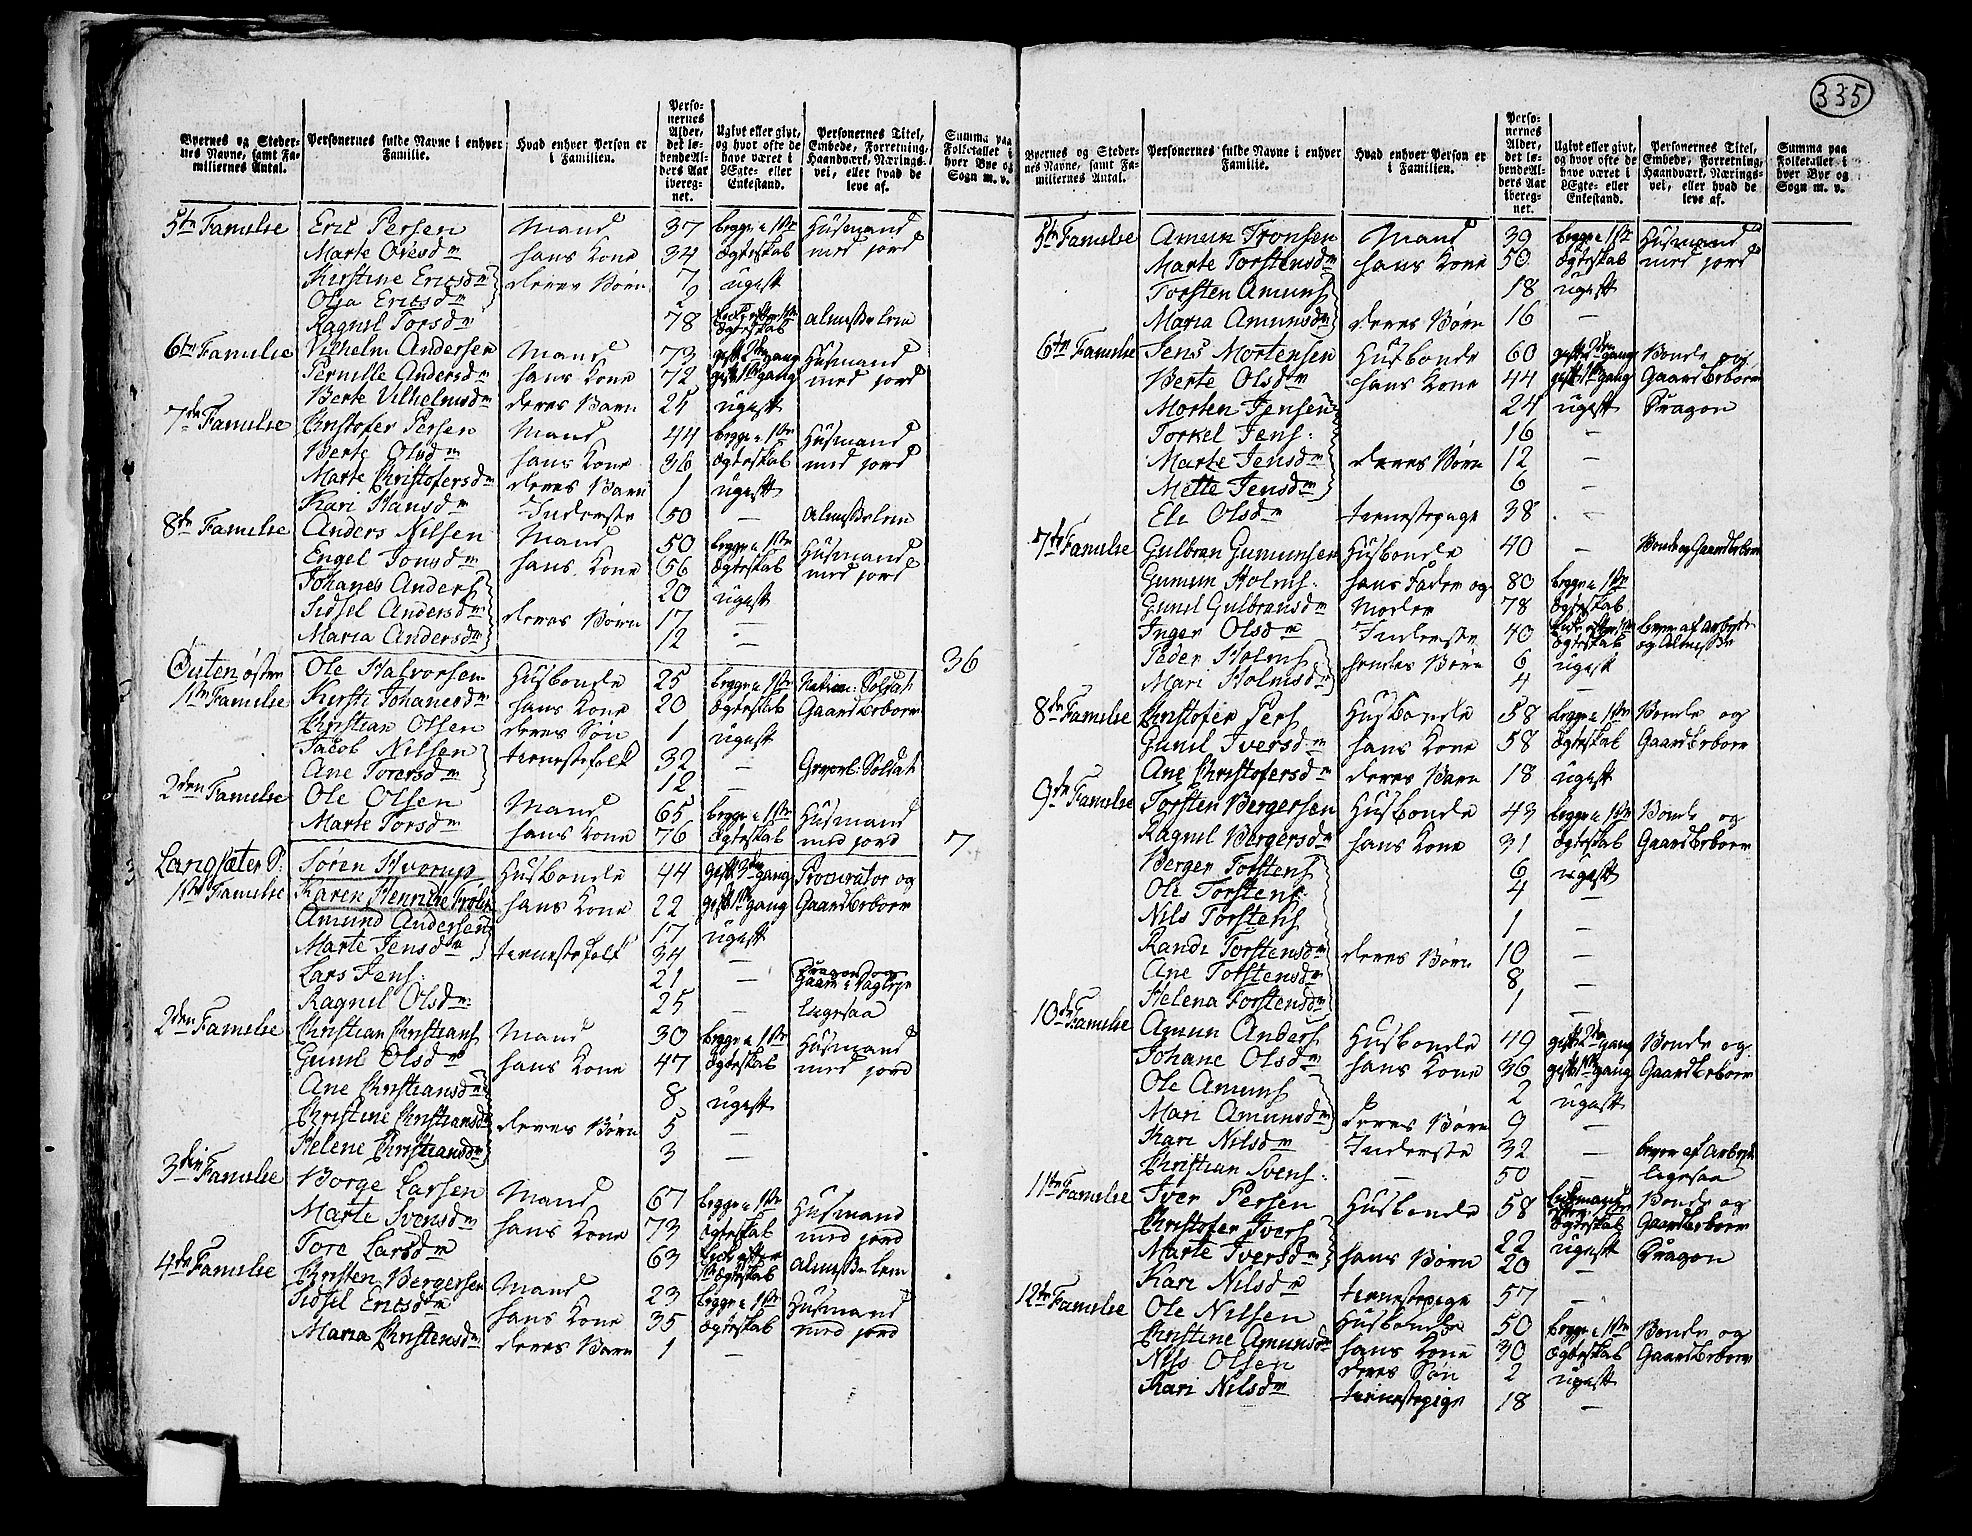 335
Byernes og Stedernes Navne, samt Familiernes Antal. | Personernes fulde Navne i enhver Familie. | Hvad enhver Person er i Familien. | Personernes Alder, det løbende Alders Aar iberegnet. | Ugivt eller givt, og hvor ofte de have været i Ægte- eller Enkestand. | Personernes Titel, Embede, Forretning, Haandværk, Næringsvei, eller hvad de leve af. | Summa paa Folketallet i hver Bye og Sogn m. v.
5te Familie | Eric Persen | Mand | 37 | begge i 1ste | Husmand
Marte Olesdm | hans Kone | 34 | Ægteskab | med jord
Kirstine Ericsdm | deres Børn | 7 | ugift
Olea Ericsdm | 2
Ragnil Torsdm | 78 | Ægteskab | almisse lem
6te Familie | Vilhelm Andersen | Mand | 73 | gift 2den gang | Husmand
Pernille Andersdm | hans Kone | 72 | gift 1ste gang | med jord
Berte Vilhelmsdm | deres Barn | 25 | ugift
7de Familie | Christofer Persen | Mand | 44 | begge i 1ste | Husmand
Berte Olsdm | hans Kone | 36 | Ægteskab | med jord
Marte Christofersdm | deres Barn | 1 | ugift
Kari Hansdm | Inderste | 50 | — | almisse lem
8de Familie | Anders Nilsen | Mand | 50 | begge i 1ste | Husmand
Engel Jonsdm | hans Kone | 56 | Ægteskab | med jord
Johanes Anders | 20 | ugift
Sidsel Andersdm | deres Børn | 17 | —
Maria Andersdm | 12 | — | 36
Outen østen | Ole Halvorsen | Husbonde | 25 | begge i 1ste | Nation: Soldat
1ste Familie | Kirsti Johanesdm | hans Kone | 20 | Ægteskab | Gaardbeboer
Christian Olsen | deres Søn | 1 | ugift
Jacob Nilsen | tienestefolk | 32 | — | Gevorb. Soldat
Ane Torersdm | 12 | —
2den Familie | Ole Olsen | Mand | 65 | begge i 1ste | Husmand
Marte Torsdm | hans Kone | 76 | Ægteskab | med jord | 7
Langsæter S: | Søren Hvorup | Husbonde | 44 | gift 3die gang | Procurator og
1ste Familie | Karen Henricke | hans Kone | 22 | gift 1ste gang | Gaardbeboer
Amund Andersen | 17 | ugift
Marte Jensdm | tienestefolk | 34 | —
Lars Jens: | 21 | — | Dragon og
Ragnil Olsdm: | 25 | — | ligesaa
2den Familie | Christian Christians | Mand | 30 | begge i 1ste | Husmand
Gunil Olsdm | hans Kone | 47 | Ægteskab | med jord
Ane Christiansdm | 8 | ugift
Christine Christiansdm | deres Børn | 5 | —
Helene Christiansdm | 3 | —
3die Familie | Borge Larsen | Mand | 67 | begge i 1ste | Husmand
Marte Svensdm | hans Kone | 73 | Ægteskab | med jord
Tore Larsdm | 63 | Enke efter 1ste Ægteskab | almisse lem
4de Familie | Christen Bergersen | Mand | 23 | begge i 1ste | Husmand
Sidsel Ericsdm | hans Kone | 35 | Ægteskab | med jord
Maria Christensdm | deres Barn | 1 | —
Byernes og Stedernes Navne, samt Familiernes Antal. | Personernes fulde Navne i enhver Familie. | Hvad enhver Person er i Familien. | Personernes Alder, det løbende Alders Aar iberegnet. | Ugivt eller givt, og hvor ofte de have været i Ægte- eller Enkestand. | Personernes Titel, Embede, Forretning, Haandværk, Næringsvei, eller hvad de leve af. | Summa paa Folketallet i hver Bye og Sogn m. v.
5te Familie | Amun Tronsen | Mand | 39 | begge i 1ste | Husmand
Marte Torstensdm | hans Kone | 50 | Ægteskab | med jord
Torsten Amuns | 18 | ugift
Maria Amunsdm | deres Børn | 16 | —
6te Familie | Jens Mortensen | Husbonde | 60 | gift 2den gang | Bonde og
Berte Olsdm | hans Kone | 44 | gift 1ste gang | Gaardbeboer
Morten Jensen | 24 | ugift | Dragon
Torkel Jens: | 16 | —
Marte Jensdm | deres Børn | 12 | —
Mette Jensdm | 6 | —
Eli Olsdm | tienestepige | 38 | —
7de Familie | Gulbran Gumunsen | Husbonde | 40 | — | Bonde og Gaardbeboer
Gumun Holms: | hans Fader og | 80 | begge i 1ste
Gunil Gulbransdm | Moder | 78 | Ægteskab
Inger Olsdm | Inderste | 40 | Enke efter 1ste Ægteskab | lever af arbejde og Almisse
Peder Holms | hendes Børn | 6 | ugift
Mari Holmsdm | 4 | —
8de Familie | Christofer Pers | Husbonde | 58 | begge i 1ste | Bonde og
Gunil Iversdm | hans Kone | 58 | Ægteskab | Gaardbeboer
Ane Christofersdm | deres Barn | 18 | ugift
9de Familie | Torsten Bergersen | Husbonde | 43 | begge i 1ste | Bonde og
Ragnil Bergersdm | hans Kone | 31 | Ægteskab | Gaardbeboer
Berger Torstens | 6 | ugift
Ole Torstens: | 4 | —
Nils Torstens | 1 | —
Randi Torstensdm | deres Børn | 10 | —
Ane Torstensdm | 8 | —
Helena Torstensdm | 1 | —
10de Familie | Amun Anders | Husbonde | 49 | gift 2den gang | Bonde og
Johane Olsdm | hans Kone | 36 | gift 1ste gang | Gaardbeboer
Ole Amuns | 2 | ugift
Mari Amunsdm | deres Børn | 9 | —
Kari Nilsdm | Inderste | 32 | — | lever af arbejde
Christian Svens: | 50 | — | ligesaa
11te Familie | Iver Persen | Husbonde | 58 | Enkemand efter 1ste Ægteskab | Bonde og Gaardbeboer
Christofer Ivers | 22 | ugift | Dragon
Marte Iversdm | hans Børn | 20 | —
Kari Nilsdm | tienestepige | 57 | —
12te Familie | Ole Nilsen | Husbonde | 50 | begge i 1ste | Bonde og
Christine Amunsdm | hans Kone | 30 | Ægteskab | Gaardbeboer
Nils Olsen | deres Søn | 2 | ugift
Kari Nilsdm | tienestepige | 18 | —